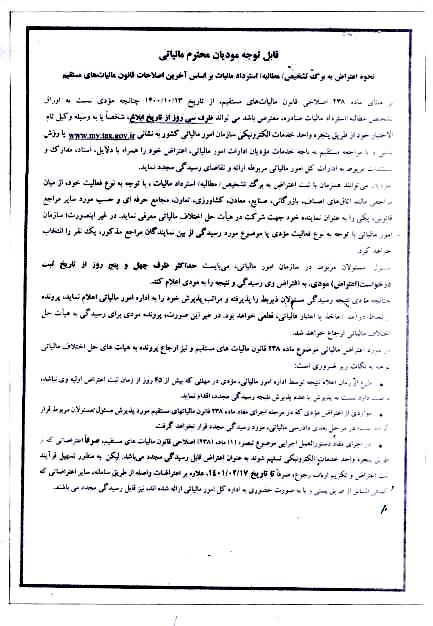 قابل توجه مودیان محترم مالیاتی
نحوه اعتراض به برگ تشخیص/ مطالبه/ استرداد مالیات بر اساس آخرین اصلاحات قانون مالیات‌های مستقیم
بر مبنای ماده ۲۳۸ اصلاحی قانون مالیات‌های مستقیم، از تاریخ ۱۴۰۰/۱۰/۱۳ چنانچه مؤدی نسبت به اوراق
تشخیص مطالبه استرداد مالیات صادره، معترض باشد می تواند ظرف سی روز از تاریخ ابلاغ، شخصاً یا به وسیله وکیل تام
الاختیار خود از طریق پنجره واحد خدمات الکترونیکی سازمان امور مالیاتی کشور به نشانی www.my.tax.gov.ir یا روش
پستی و یا مراجعه مستقیم به باجه خدمات مؤدیان ادارات امور مالیاتی، اعتراض خود را همراه با دلایل، اسناد، مدارک و
مستندات مربوطه به ادارات کل امور مالیاتی مربوطه ارائه و تقاضای رسیدگی مجدد نماید.
مؤدیان می‌توانند همزمان با ثبت اعتراض به برگ تشخیص/ مطالبه/ استرداد مالیات، با توجه به نوع فعالیت خود، از میان
مراجعی مانند اتاق‌های اصناف، بازرگانی، صنایع، معادن، کشاورزی، تعاون، مجامع حرفه ای و حسب مورد سایر مراجع
قانونی، یکی را به عنوان نماینده خود جهت شرکت در هیأت حل اختلاف مالیاتی معرفی نماید. در غیر اینصورت؛ سازمان
امور مالیاتی با توجه به نوع فعالیت مؤدی یا موضوع مورد رسیدگی از بین نمایندگان مراجع مذکور، یک نفر را انتخاب
خواهد کرد.
مسئول مسئولان مربوط در سازمان امور مالیاتی، می‌بایست حداکثر ظرف چهل و پنج روز از تاریخ ثبت
درخواست(اعتراض) مؤدی، به اعتراض وی رسیدگی و نتیجه را به مؤدی اعلام کند.
چنانچه مؤدی نتیجه رسیدگی مسئولان ذیربط را پذیرفته و مراتب پذیرش خود را به اداره امور مالیاتی اعلام نماید، پرونده
از لحاظ درآمد /مأخذ یا اعتبار مالیاتی، قطعی خواهد بود. در غیر این صورت؛ پرونده مودی برای رسیدگی به هیأت حل
اختلاف مالیاتی ارجاع خواهد شد.
در مورد اعتراض مالیاتی موضوع ماده ۲۳۸ قانون مالیات های مستقیم و نیز ارجاع پرونده به هیات های حل اختلاف مالیاتی
توجه به نکات زیر ضروری است:
از زمان اعلام نتیجه توسط اداره امور مالیاتی، مؤدی در مهلتی که بیش از ۴۵ روز از زمان ثبت اعتراض اولیه وی نباشد،
دارد نسبت به پذیرش یا عدم پذیرش نتیجه رسیدگی مجدد، اقدام نماید.
مواردی از اعتراض مؤدی که در مرحله اجرای مفاد ماده ۲۳۸ قانون مالیاتهای مستقیم مورد پذیرش مسئول/مسئولان مربوط قرار
مراحل بعدی دادرسی مالیاتی، مورد رسیدگی مجدد قرار نخواهد گرفت.
در اجرای مفاد دستورالعمل اجرایی موضوع تبصره (۱) ماده (۲۳۸) اصلاحی قانون مالیات های مستقیم، صرفاً اعتراضاتی که از
طریق پنجره واحد خدمات الکترونیکی تسلیم شوند به عنوان اعتراض قابل رسیدگی مجدد می‌باشد. لیکن به منظور تسهیل فرآیند
ثبت اعتراض و تکریم ارباب رجوع، صرفاً تا تاریخ ۱۴۰۱/۰۳/۱۷، علاوه بر اعتراضات واصله از طریق سامانه، سایر اعتراضاتی که
از طریق پستی و یا به صورت حضوری به اداره کل امور مالیاتی ارائه شده اند، نیز قابل رسیدگی مجدد می باشند.